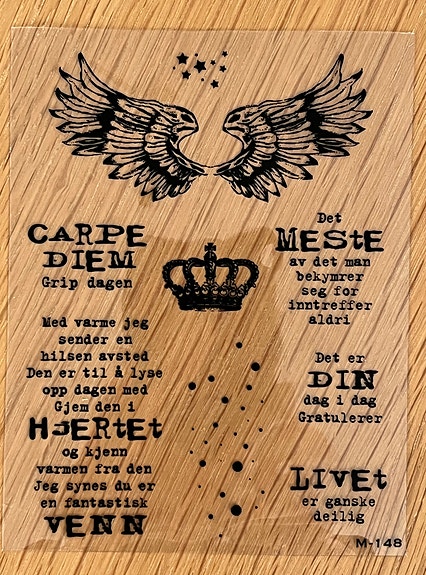 CARPE
DIEM
Grip dagen
Med varme jeg
sender en
hilsen avsted
Den er til å lyse
opp dagen med
Gjem den i
HJERtEt
og kjenn
varmen fra den
Jeg synes du er
en fantastisk
VENN
Det
MESte
av det man
bekymrer
seg for
inntreffer
aldri
Det er
DIN
dag i dag
Gratulerer
LIVEt
er ganske
deilig
M-148